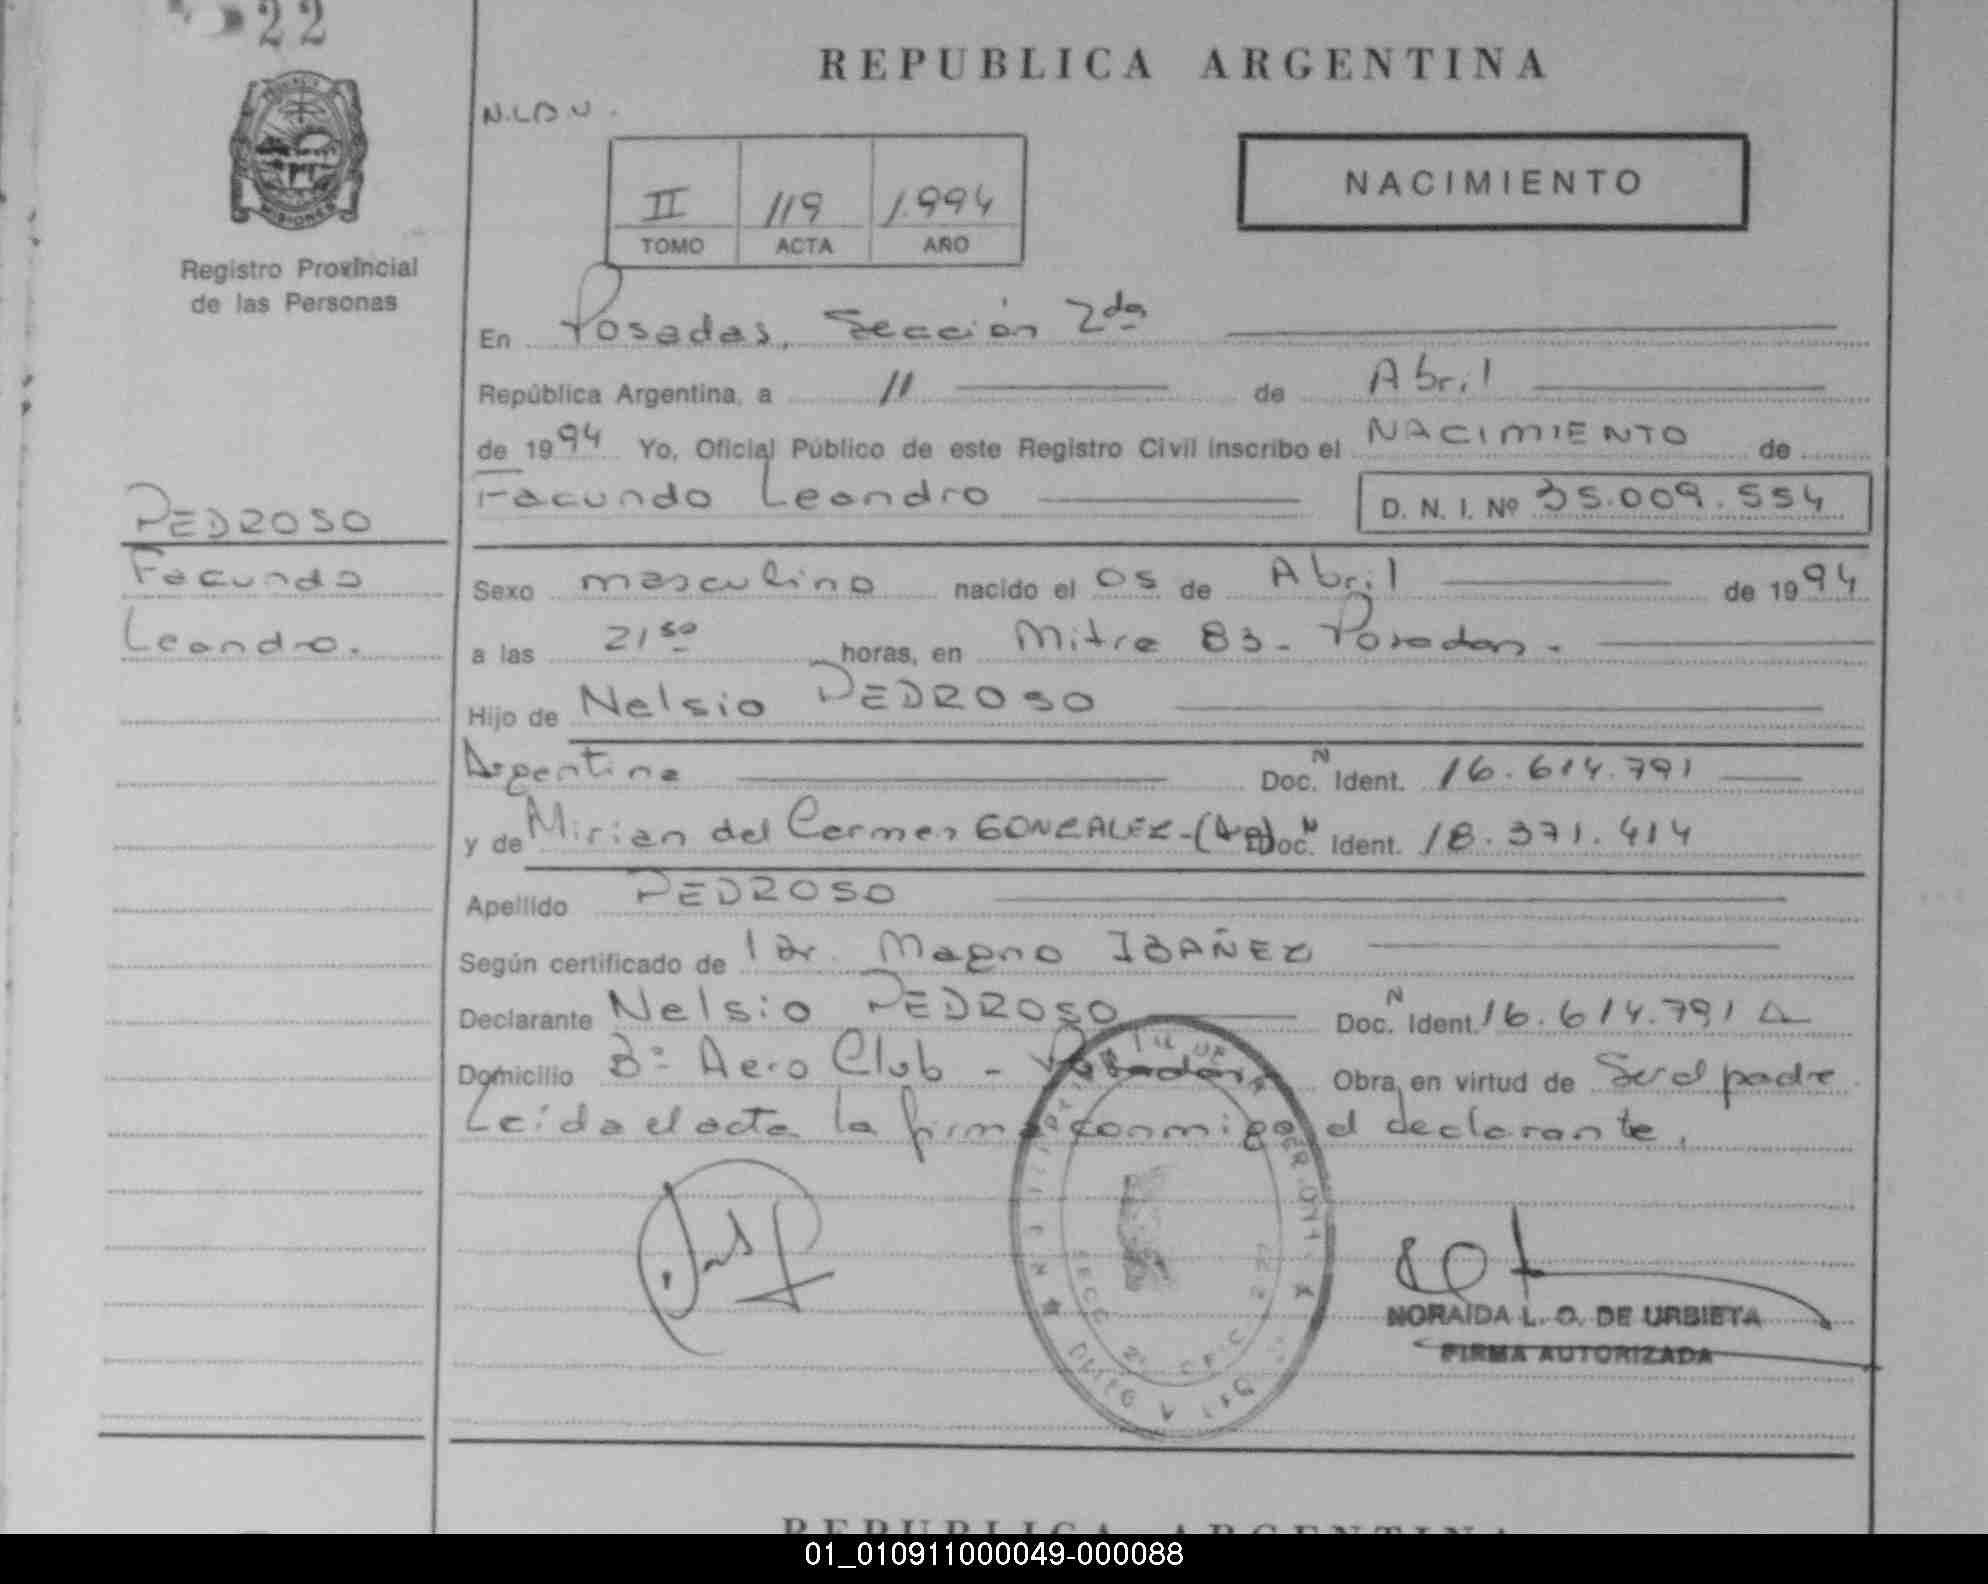 22
REPUBLICA ARGENTINA
N.L.D.U.
NACIMIENTO
II 119 1.994
TOMO ACTA AÑO
MISIONES
Registro Provincial
de las Personas
En Posadas, Sección 2da
República Argentina, a 11 de Abril
de 1994 Yo, Oficial Público de este Registro Civil inscribo el NACIMIENTO de
Facundo Leandro D. N. I. Nº 35.009.554
PEDROSO
Facundo
Leandro.
Sexo masculino nacido el 05 de Abril de 1994
a las 21 50 horas, en Mitre 83 - Posadas.-
Hijo de Nelsio PEDROSO
Argentina Doc. N Ident. 16.614.791
y de Mirian del Carmen GONZALEZ - (Ar) Doc. N Ident. 18.371.414
Apellido PEDROSO
Según certificado de l Dr. Magno IBAÑEZ
Declarante Nelsio PEDROSO Doc. N Ident. 16.614.791
Domicilio Bº Aero Club - Posadas Obra, en virtud de Ser el padre
Leída el acta la firma conmigo el declarante.
SECC 2º
NORAIDA L. O. DE URBIETA
FIRMA AUTORIZADA
REPUBLICA ARGENTINA
01_010911000049-000088